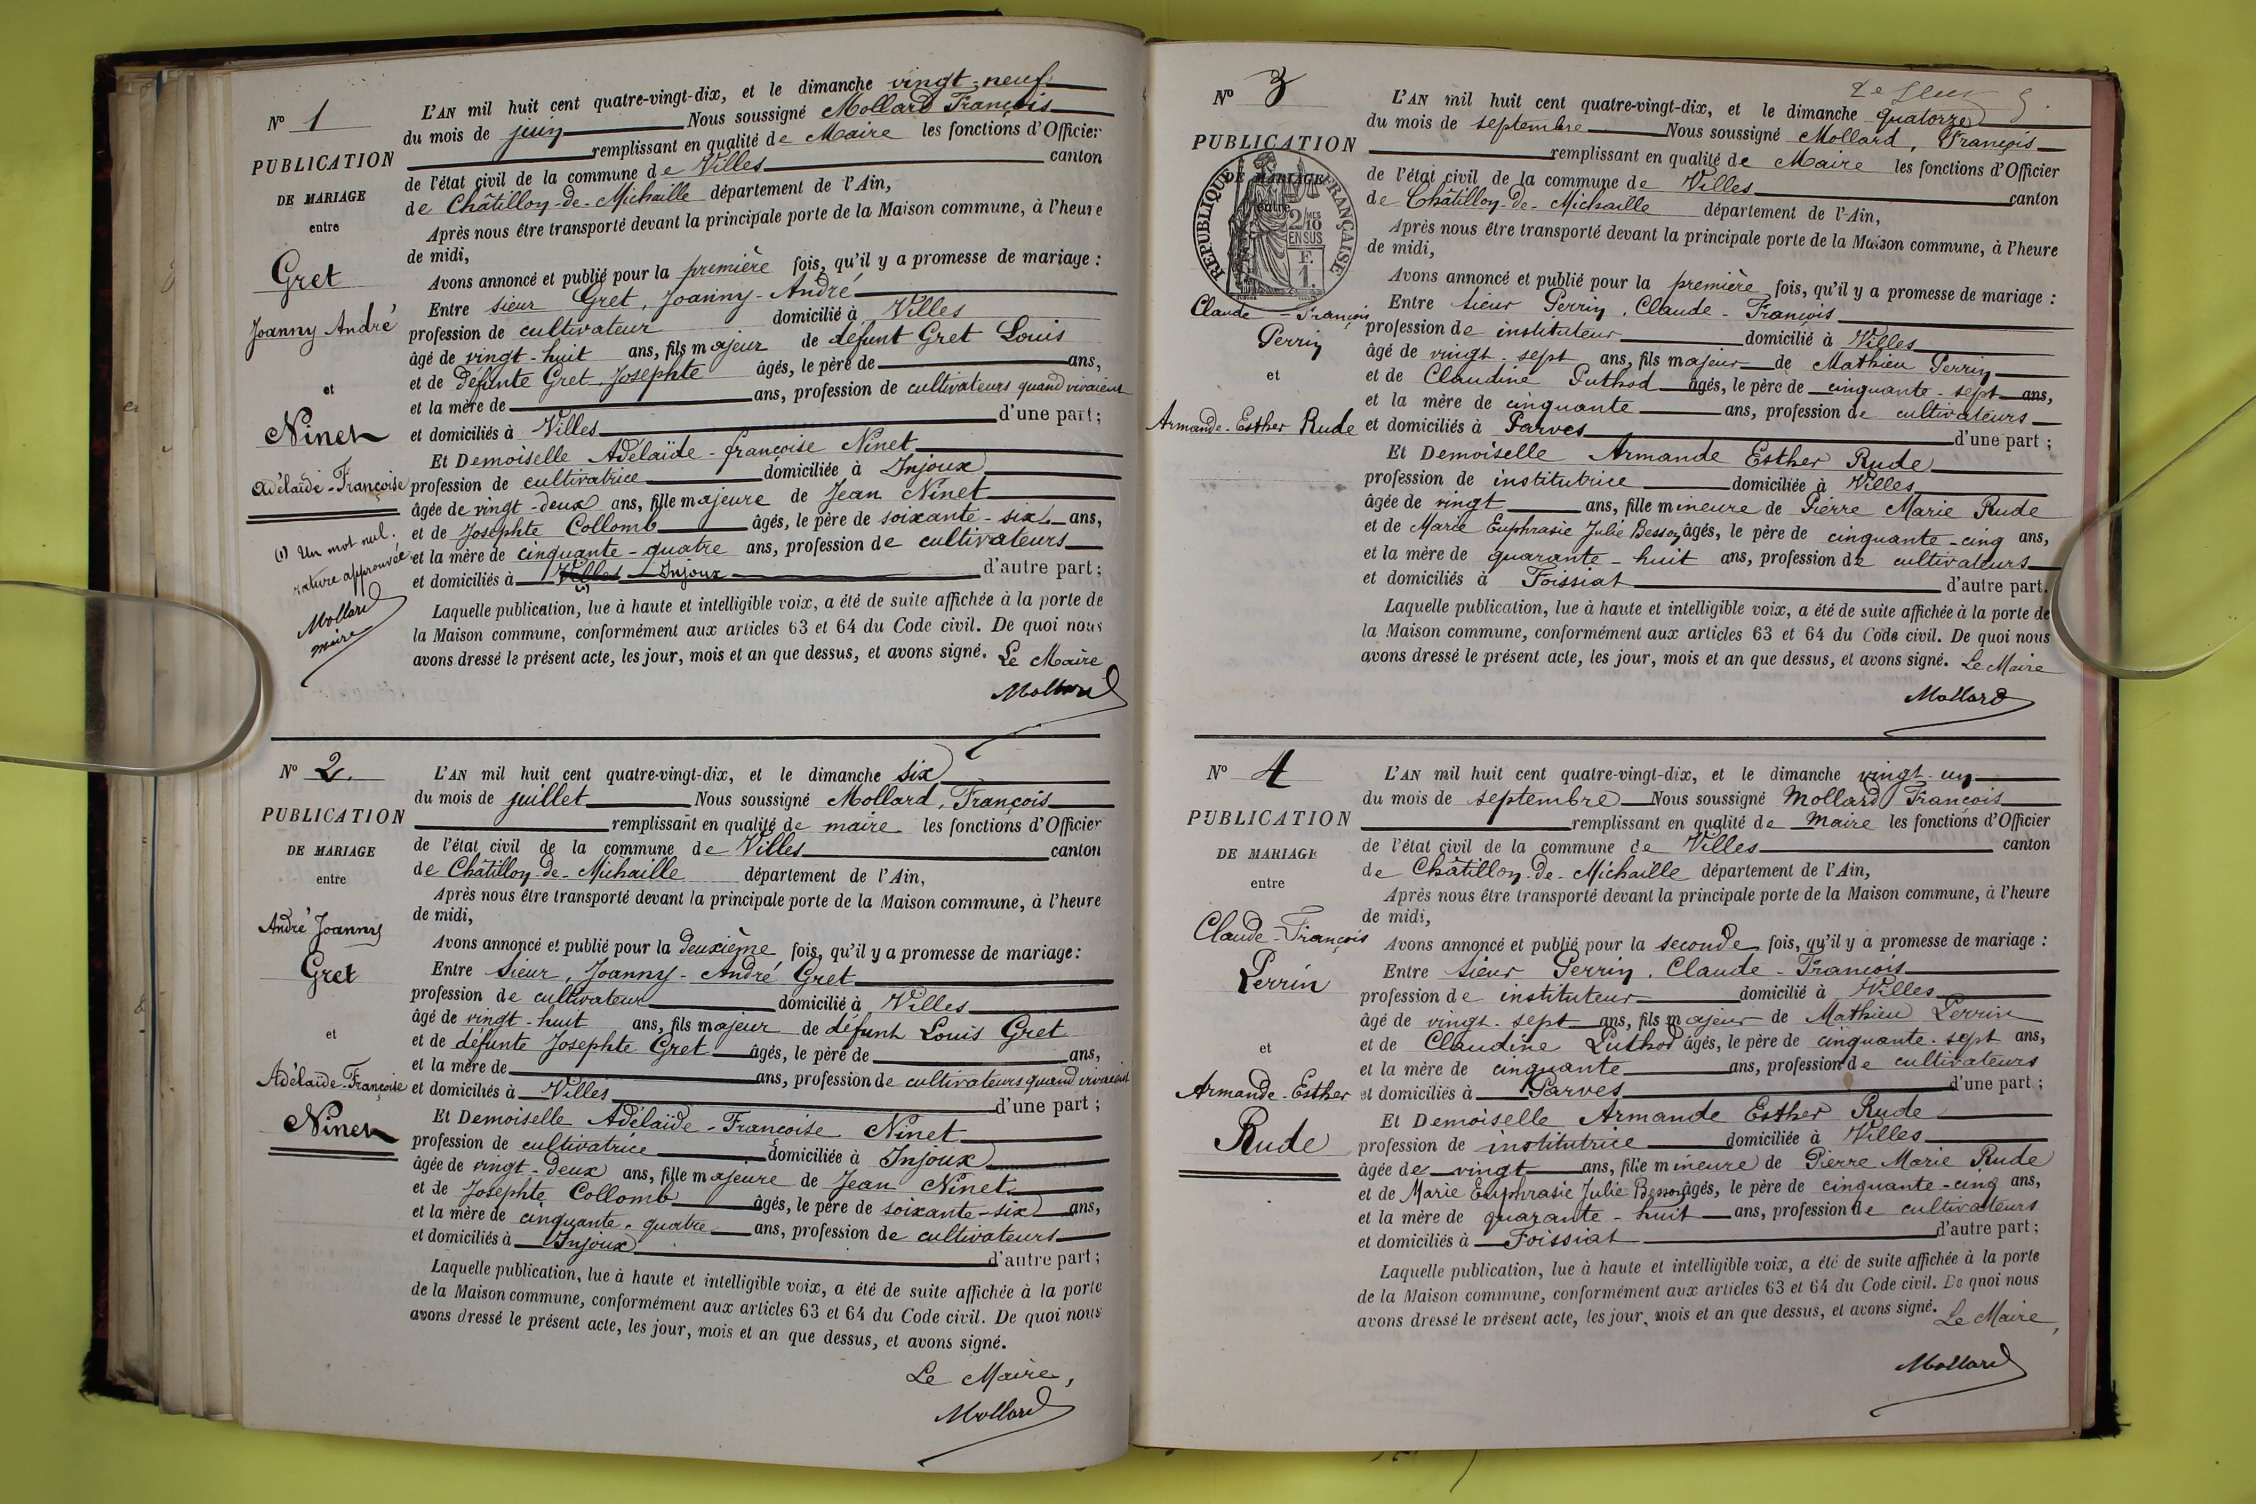 N° 1
PUBLICATION
DE MARIAGE
entre
Gret
Joanny André
et
Ninet
Adélaïde-Françoise
(1) Un mot nul.
rature approuvée
Mollard
maire
L'AN mil huit cent quatre-vingt-dix, et le dimanche vingt-neuf
du mois de juin Nous soussigné Mollard François
remplissant en qualité de Maire les fonctions d'Officier
de l'état civil de la commune de Villes canton
de Châtillon-de-Michaille département de l'Ain,
Après nous être transporté devant la principale porte de la Maison commune, à l'heure
de midi,
Avons annoncé et publié pour la première fois, qu'il y a promesse de mariage :
Entre sieur Gret, Joanny-André
profession de cultivateur domicilié à Villes
âgé de vingt-huit ans, fils majeur de défunt Gret Louis
et de défunte Gret Josephte âgés, le père de ans,
et la mère de ans, profession de cultivateurs quand vivaient
et domiciliés à Villes d'une part ;
Et Demoiselle Adélaïde-françoise Ninet
profession de cultivatrice domiciliée à Injoux
âgée de vingt-deux ans, fille majeure de Jean Ninet
et de Josephte Collomb âgés, le père de soixante-six ans,
et la mère de cinquante-quatre ans, profession de cultivateurs
et domiciliés à Villes (1) Injoux d'autre part ;
Laquelle publication, lue à haute et intelligible voix, a été de suite affichée à la porte de
la Maison commune, conformément aux articles 63 et 64 du Code civil. De quoi nous
avons dressé le présent acte, les jour, mois et an que dessus, et avons signé. Le Maire
Mollard
N° 2.
PUBLICATION
DE MARIAGE
entre
André Joanny
Gret
et
Adélaïde-Françoise
Ninet
L'AN mil huit cent quatre-vingt-dix, et le dimanche six
du mois de juillet Nous soussigné Mollard, François
remplissant en qualité de maire les fonctions d'Officier
de l'état civil de la commune de Villes canton
de Châtillon-de-Michaille département de l'Ain,
Après nous être transporté devant la principale porte de la Maison commune, à l'heure
de midi,
Avons annoncé et publié pour la deuxième fois, qu'il y a promesse de mariage :
Entre sieur, Joanny-André Gret
profession de cultivateur domicilié à Villes
âgé de vingt-huit ans, fils majeur de défunt Louis Gret
et de défunte Josephte Gret âgés, le père de ans,
et la mère de ans, profession de cultivateurs quand vivaient
et domiciliés à Villes d'une part ;
Et Demoiselle Adélaïde-Françoise Ninet
profession de cultivatrice domiciliée à Injoux
âgée de vingt-deux ans, fille majeure de Jean Ninet
et de Josephte Collomb âgés, le père de soixante-six ans,
et la mère de cinquante-quatre ans, profession de cultivateurs
et domiciliés à Injoux d'autre part ;
Laquelle publication, lue à haute et intelligible voix, a été de suite affichée à la porte
de la Maison commune, conformément aux articles 63 et 64 du Code civil. De quoi nous
avons dressé le présent acte, les jour, mois et an que dessus, et avons signé.
Le Maire,
Mollard
N° 3
PUBLICATION
DE MARIAGE
entre
RÉPUBLIQUE FRANÇAISE
2/10 MES
EN SUS
F.
1.
Claude-François
Perrin
et
Armande-Esther Rude
L'AN mil huit cent quatre-vingt-dix, et le dimanche quatorze
du mois de septembre Nous soussigné Mollard, François
remplissant en qualité de Maire les fonctions d'Officier
de l'état civil de la commune de Villes canton
de Châtillon-de-Michaille département de l'Ain,
Après nous être transporté devant la principale porte de la Maison commune, à l'heure
de midi,
Avons annoncé et publié pour la première fois, qu'il y a promesse de mariage :
Entre sieur Perrin, Claude-François
profession de instituteur domicilié à Villes
âgé de vingt-sept ans, fils majeur de Mathieu Perrin
et de Claudine Puthod âgés, le père de cinquante-sept ans,
et la mère de cinquante ans, profession de cultivateurs
et domiciliés à Parves d'une part ;
Et Demoiselle Armande Esther Rude
profession de institutrice domiciliée à Villes
âgée de vingt ans, fille mineure de Pierre Marie Rude
et de Marie Euphrasie Julie Besson âgés, le père de cinquante-cinq ans,
et la mère de quarante-huit ans, profession de cultivateurs
et domiciliés à Foissiat d'autre part.
Laquelle publication, lue à haute et intelligible voix, a été de suite affichée à la porte de
la Maison commune, conformément aux articles 63 et 64 du Code civil. De quoi nous
avons dressé le présent acte, les jour, mois et an que dessus, et avons signé. Le Maire
Mollard
N° 4
PUBLICATION
DE MARIAGE
entre
Claude-François
Perrin
et
Armande-Esther
Rude
L'AN mil huit cent quatre-vingt-dix, et le dimanche vingt-un
du mois de septembre Nous soussigné Mollard François
remplissant en qualité de Maire les fonctions d'Officier
de l'état civil de la commune de Villes canton
de Châtillon-de-Michaille département de l'Ain,
Après nous être transporté devant la principale porte de la Maison commune, à l'heure
de midi,
Avons annoncé et publié pour la seconde fois, qu'il y a promesse de mariage :
Entre sieur Perrin, Claude-François
profession de instituteur domicilié à Villes
âgé de vingt-sept ans, fils majeur de Mathieu Perrin
et de Claudine Puthod âgés, le père de cinquante-sept ans,
et la mère de cinquante ans, profession de cultivateurs
et domiciliés à Parves d'une part ;
Et Demoiselle Armande Esther Rude
profession de institutrice domiciliée à Villes
âgée de vingt ans, fille mineure de Pierre Marie Rude
et de Marie Euphrasie Julie Besson âgés, le père de cinquante-cinq ans,
et la mère de quarante-huit ans, profession de cultivateurs
et domiciliés à Foissiat d'autre part ;
Laquelle publication, lue à haute et intelligible voix, a été de suite affichée à la porte
de la Maison commune, conformément aux articles 63 et 64 du Code civil. De quoi nous
avons dressé le présent acte, les jour, mois et an que dessus, et avons signé. Le Maire,
Mollard